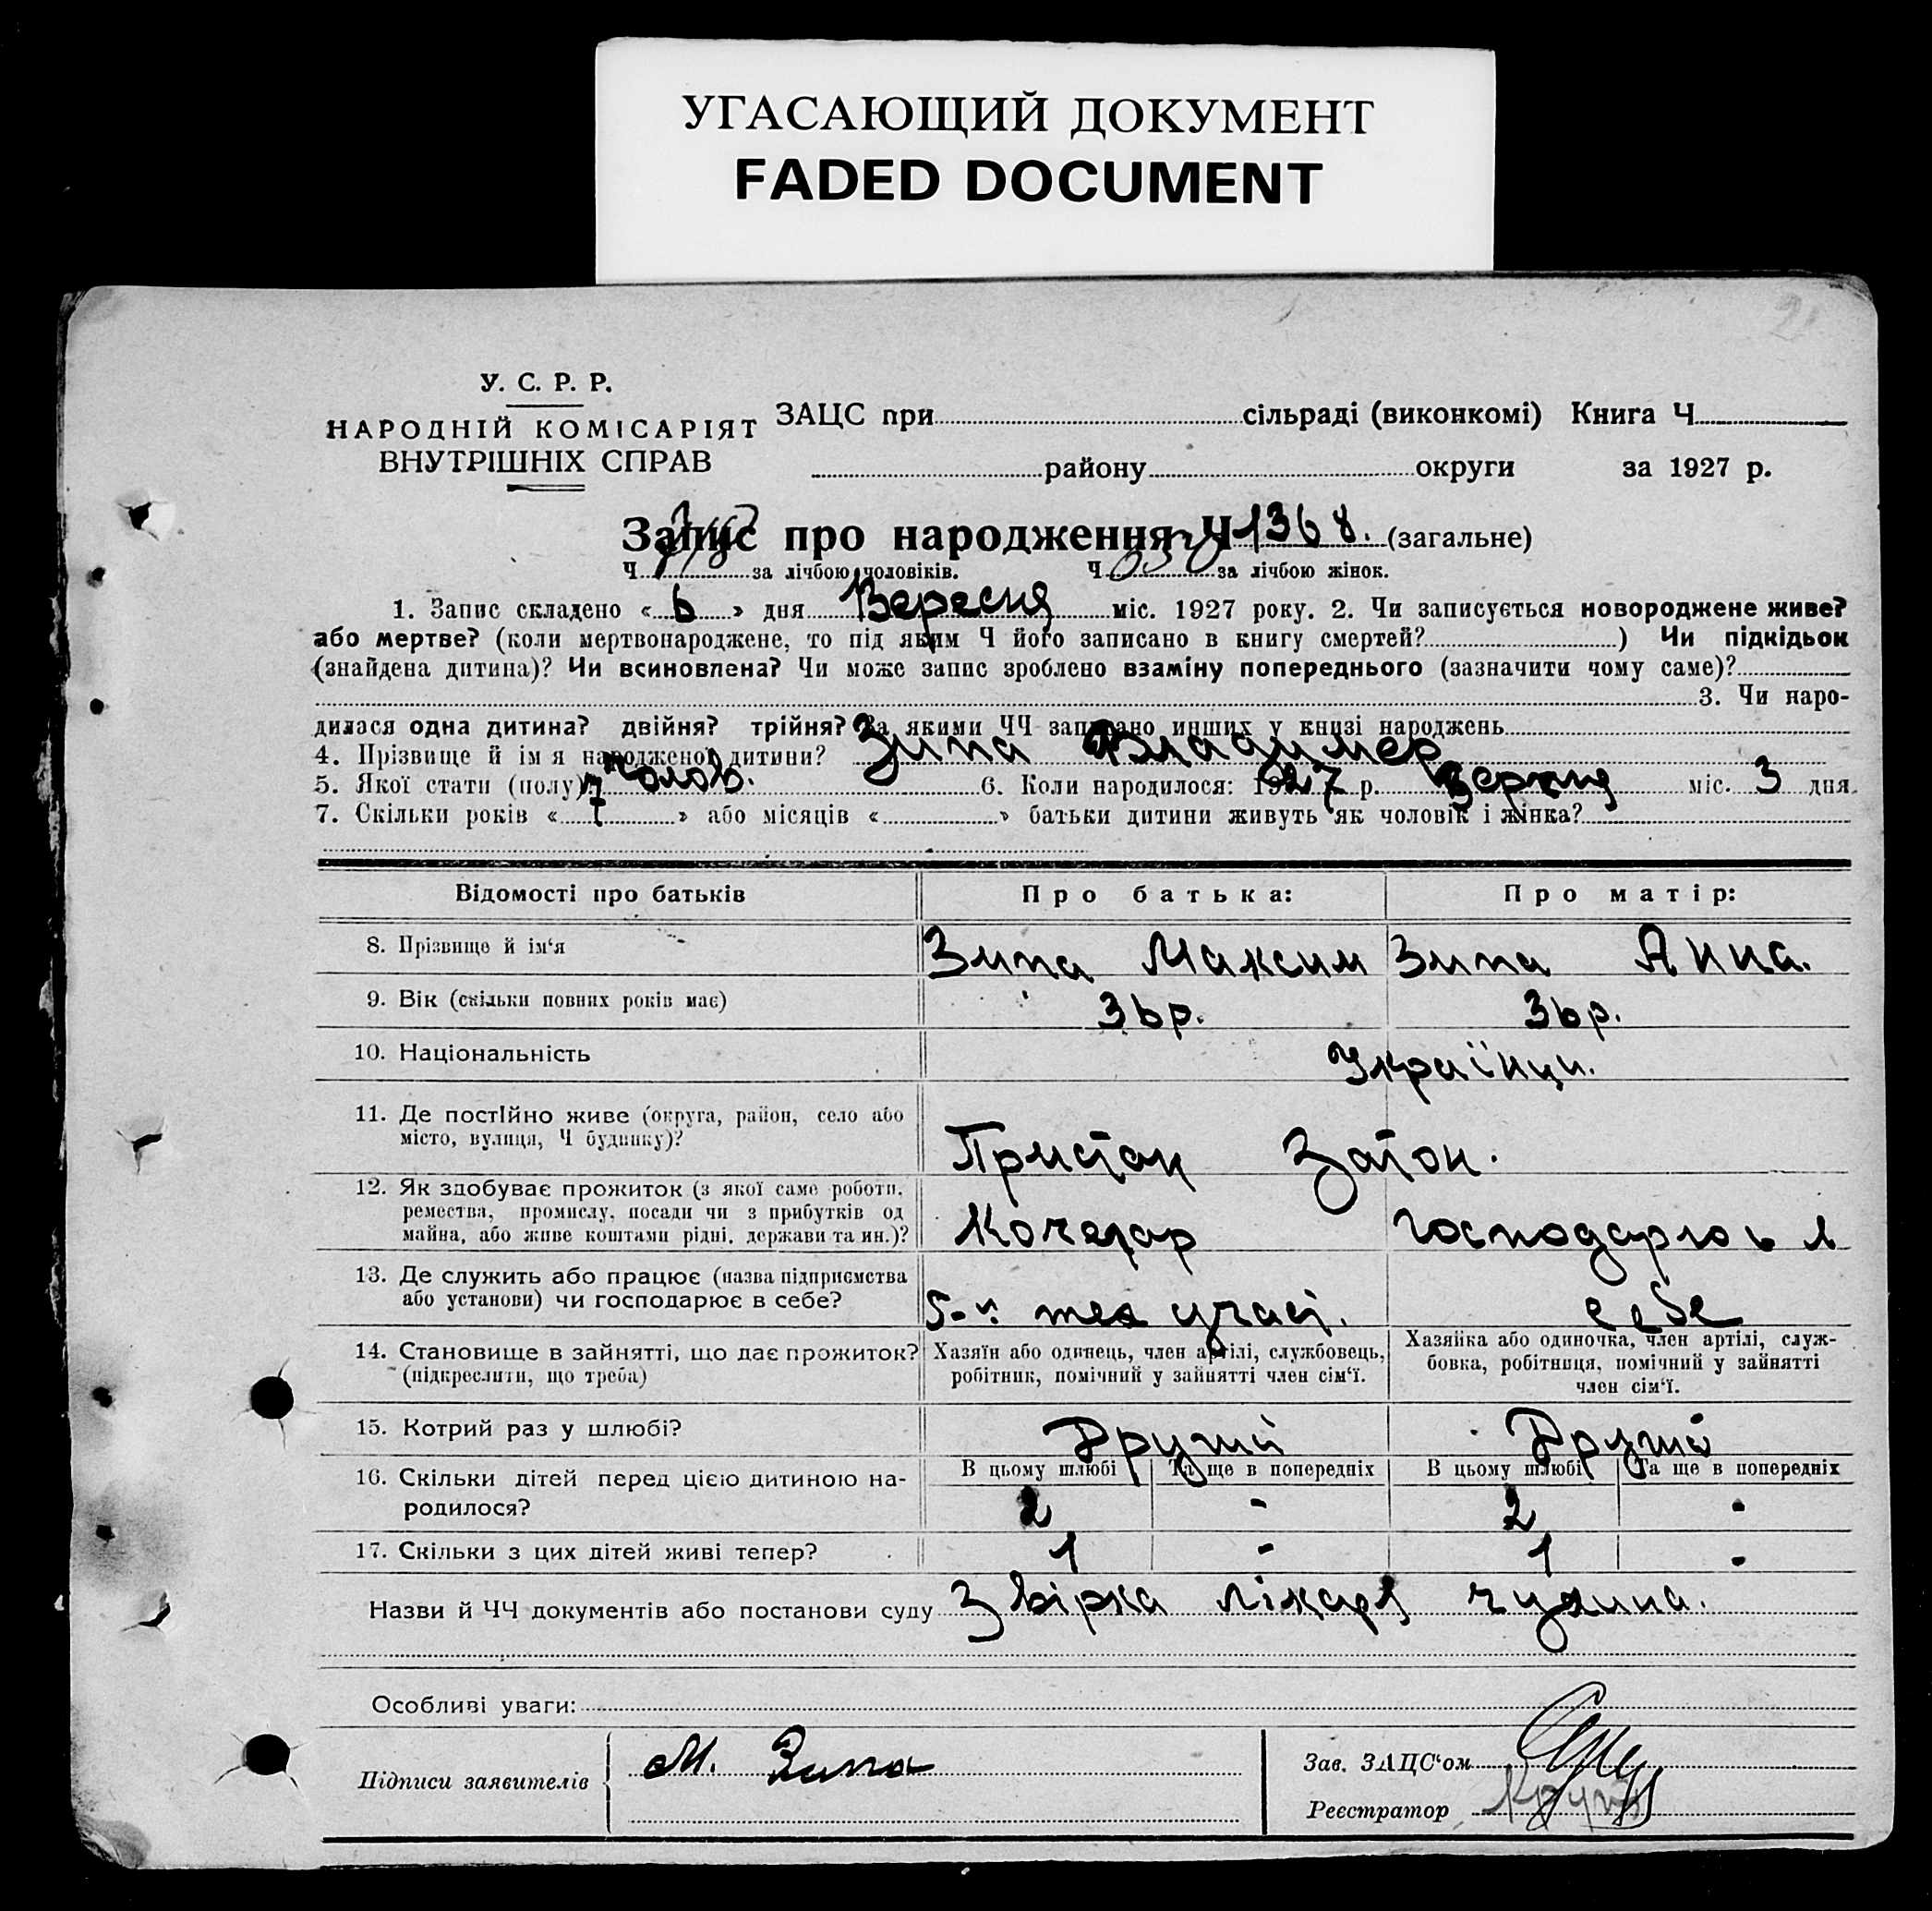 УГАСАЮЩИЙ ДОКУМЕНТ
FADED DOCUMENT
2
У. С. Р. Р.
НАРОДНІЙ КОМІСАРІЯТ
ВНУТРІШНІХ СПРАВ
ЗАЦС при сільраді (виконкомі) Книга Ч
району округи за 1927 р.
Запис про народження Ч 1368. (загальне)
Ч за лічбою чоловіків. Ч за лічбою жінок.
1. Запис складено « 6 » дня Вересня міс. 1927 року. 2. Чи записується новороджене живе?
або мертве? (коли мертвонароджене, то під яким Ч його записано в книгу смертей? ) Чи підкідьок
(знайдена дитина)? Чи всиновлена? Чи може запис зроблено взаміну попереднього (зазначити чому саме)?
3. Чи наро-
дилася одна дитина? двійня? трійня? За якими ЧЧ записано инших у книзі народжень
4. Прізвище й ім я народженої дитини? Зипа Владимер
5. Якої стати (полу) чолов. 6. Коли народилося: 1927 р. Серпня міс. 3 дня.
7. Скільки років « 7 » або місяців « » батьки дитини живуть як чоловік і жінка?
Відомості про батьків Про батька: Про матір:
8. Прізвище й ім'я Зипа Максим Зипа Анна.
9. Вік (скільки повних років має) 36р. 36р.
10. Національність Українци.
11. Де постійно живе (округа, район, село або
місто, вулиця, Ч будинку)? Пристан Затон.
12. Як здобуває прожиток (з якої саме роботи,
ремества, промислу, посади чи з прибутків од
майна, або живе коштами рідні, держави та ин.)? Кочегар господарює в
13. Де служить або працює (назва підприємства
або установи) чи господарює в себе? 5-й тех участ. себе
14. Становище в зайнятті, що дає прожиток?
(підкреслити, що треба)
Хазяїн або одинець, член артілі, службовець,
робітник, помічний у зайнятті член сім'ї.
Хазяйка або одиночка, член артілі, служ-
бовка, робітниця, помічний у зайнятті
член сім'ї.
15. Котрий раз у шлюбі? Другий Другий
В цьому шлюбі Та ще в попередніх В цьому шлюбі Та ще в попередніх
16. Скільки дітей перед цією дитиною на-
родилося? 2 - 2 -
17. Скільки з цих дітей живі тепер? 1 - 1 -
Назви й ЧЧ документів або постанови суду Звірка лікаря
Особливі уваги:
Підписи заявителів М. Зипа
Зав. ЗАЦС'ом
Реєстратор